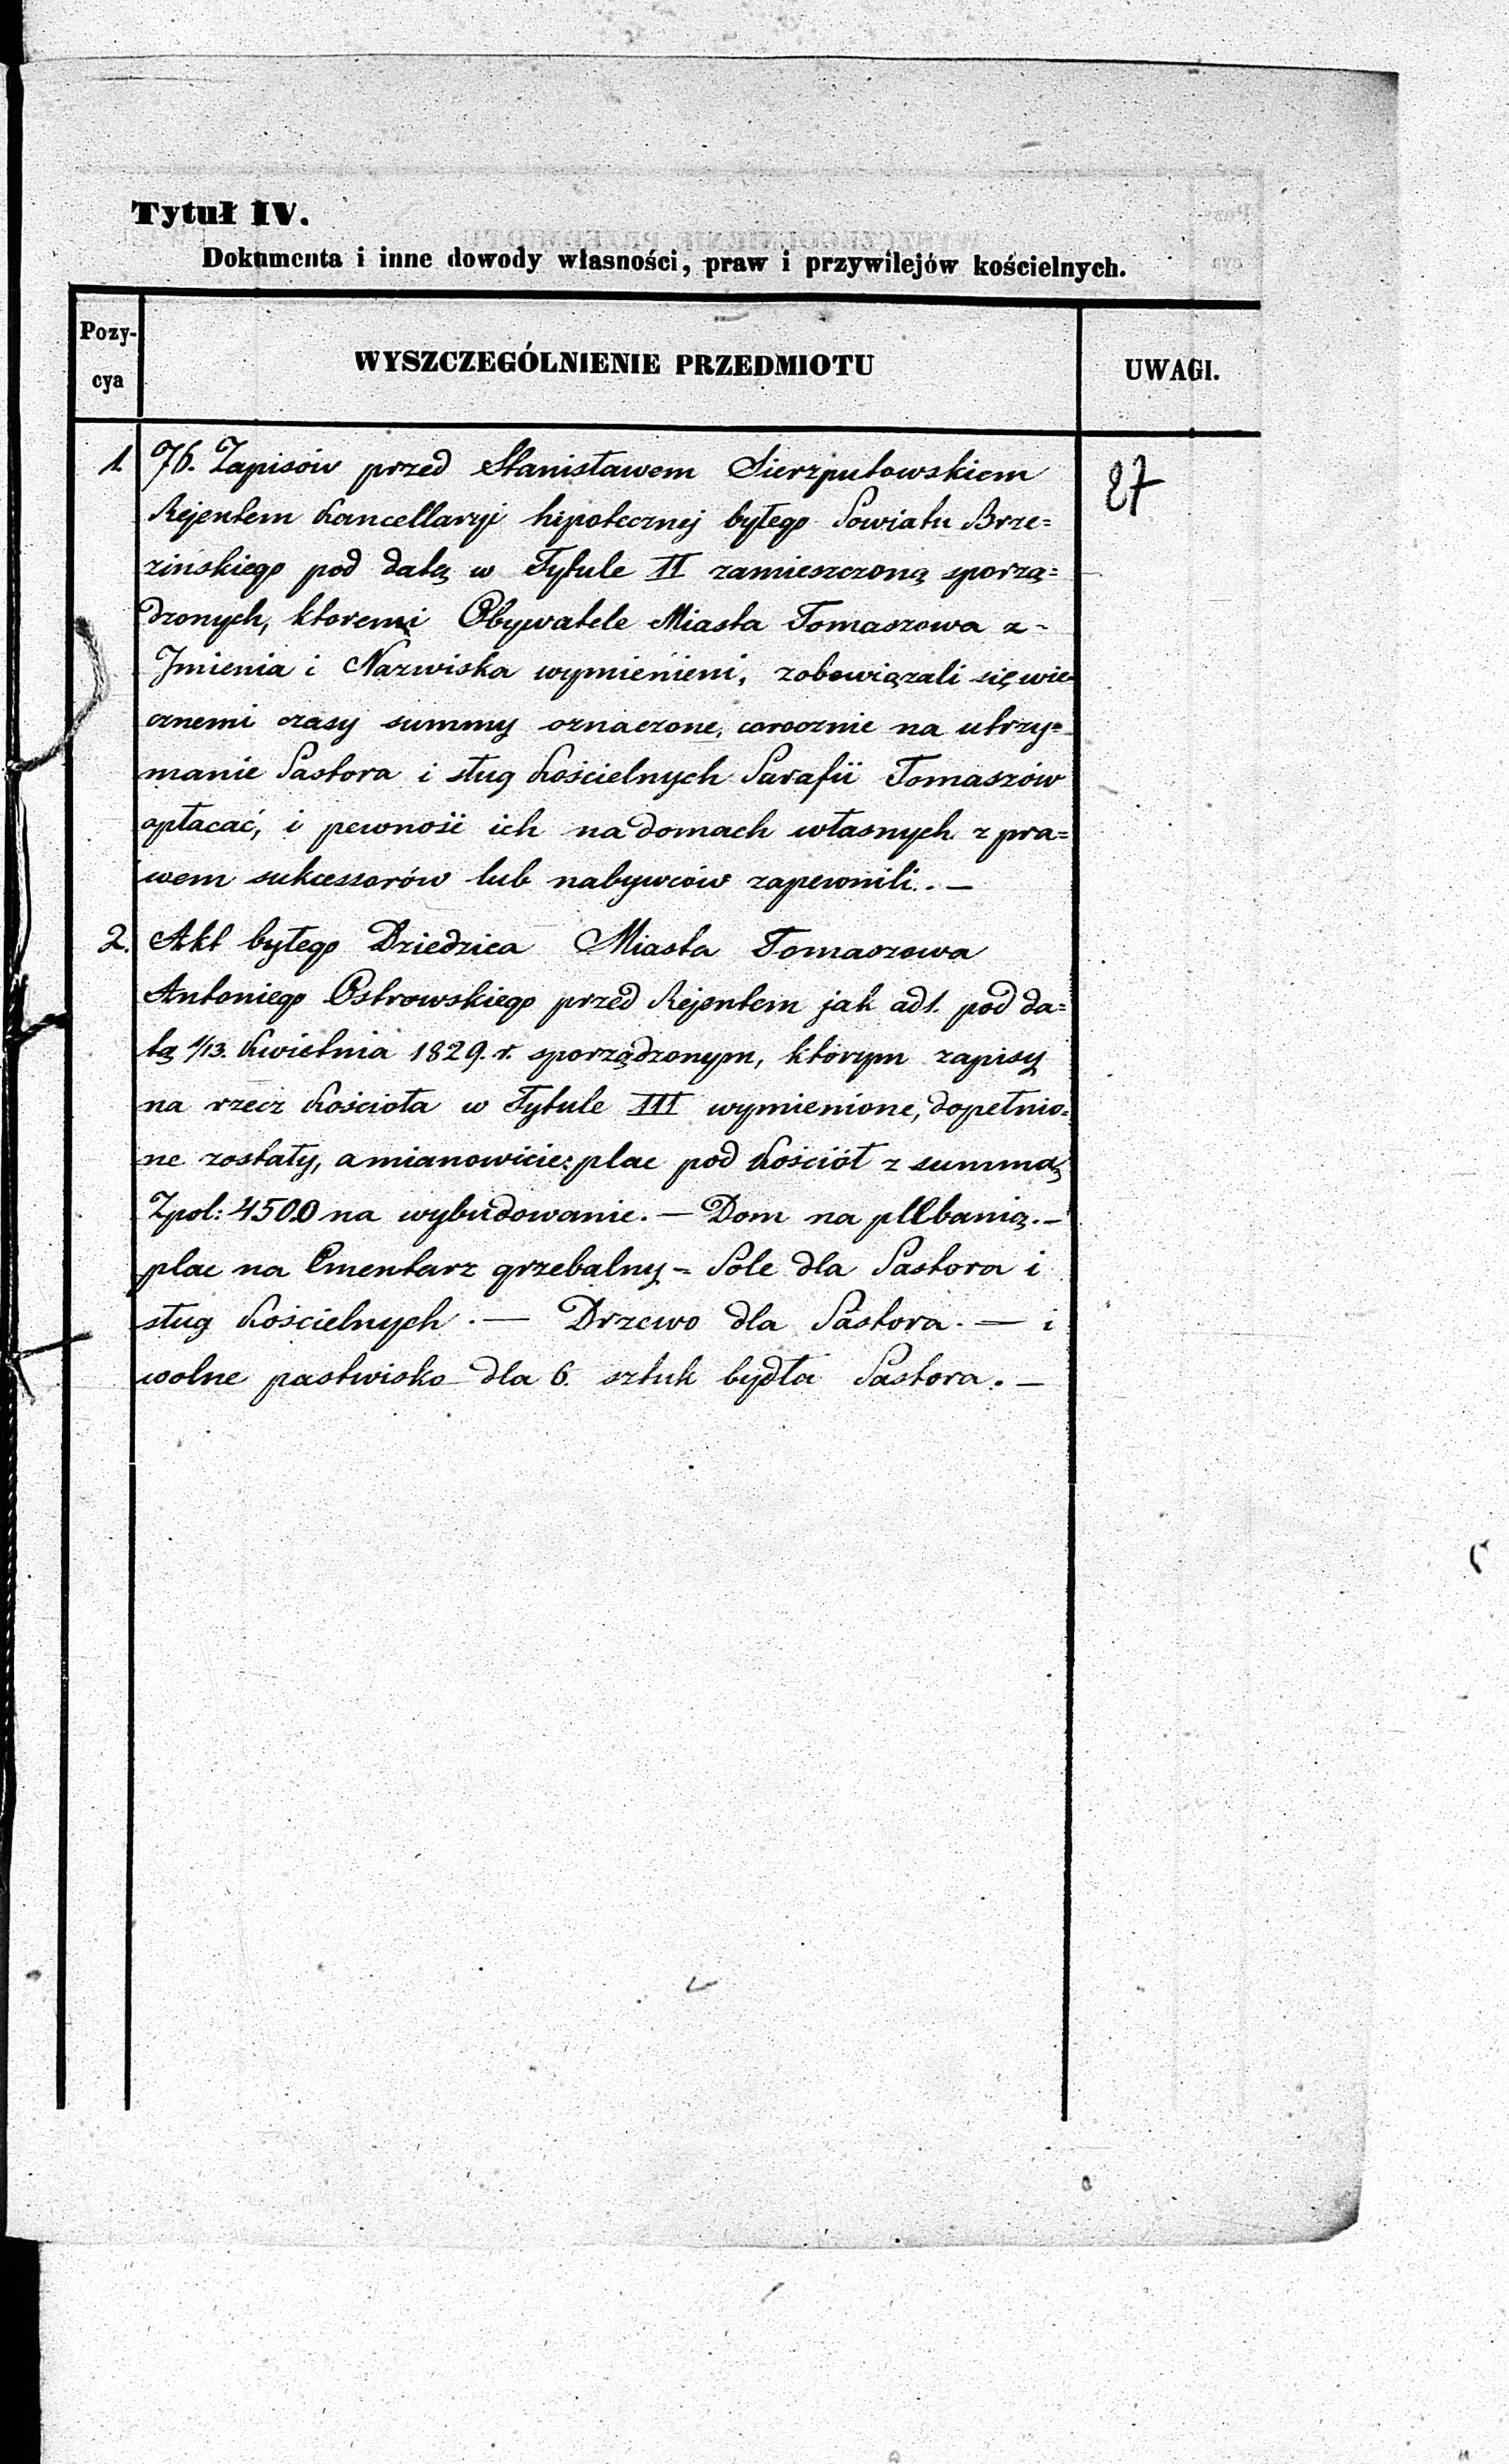 Tytuł IV.
Dokumenta i inne dowody własności, praw i przywilejów kościelnych.
Pozy-
cya
WYSZCZEGÓLNIENIE PRZEDMIOTU
UWAGI.
1. 76. Zapisów przed Stanisławem Sierzputowskiem
87
Rejentem Kancellaryi hipotecznej byłego Powiatu Brze=
zinskiego pod datą w Tytule II zamieszczoną sporzą=
dzonych, ktoremi Obywatele Miasta Tomaszowa z-
Jmienia i Nazwiska wymienieni, zobowiązali się wie-
cznemi czasy summy oznaczone, corocznie na utrzy=
manie Pastora i sług Kościelnych Parafii Tomaszów
opłacać, i pewność ich na domach własnych z pra=
wem sukcessorów lub nabywców zapewnili. . —
2. Akt byłego Dziedzica Miasta Tomaszowa
Antoniego Ostrowskiego przed Rejentem jak ad 1. pod da=
tą 1/13. Kwietnia 1829. r. sporządzonym, którym zapisy
na rzecz Kościoła w Tytule III wymienione, dopełnio=
ne zostały, a mianowicie: plac pod Kościół z summą
Zpol: 4500 na wybudowanie. — Dom na plebanią. —
plac na Cmentarz grzebalny = Pole dla Pastora i
sług Kościelnych. — Drzewo dla Pastora. — i
wolne pastwisko dla 6. sztuk bydła Pastora. —